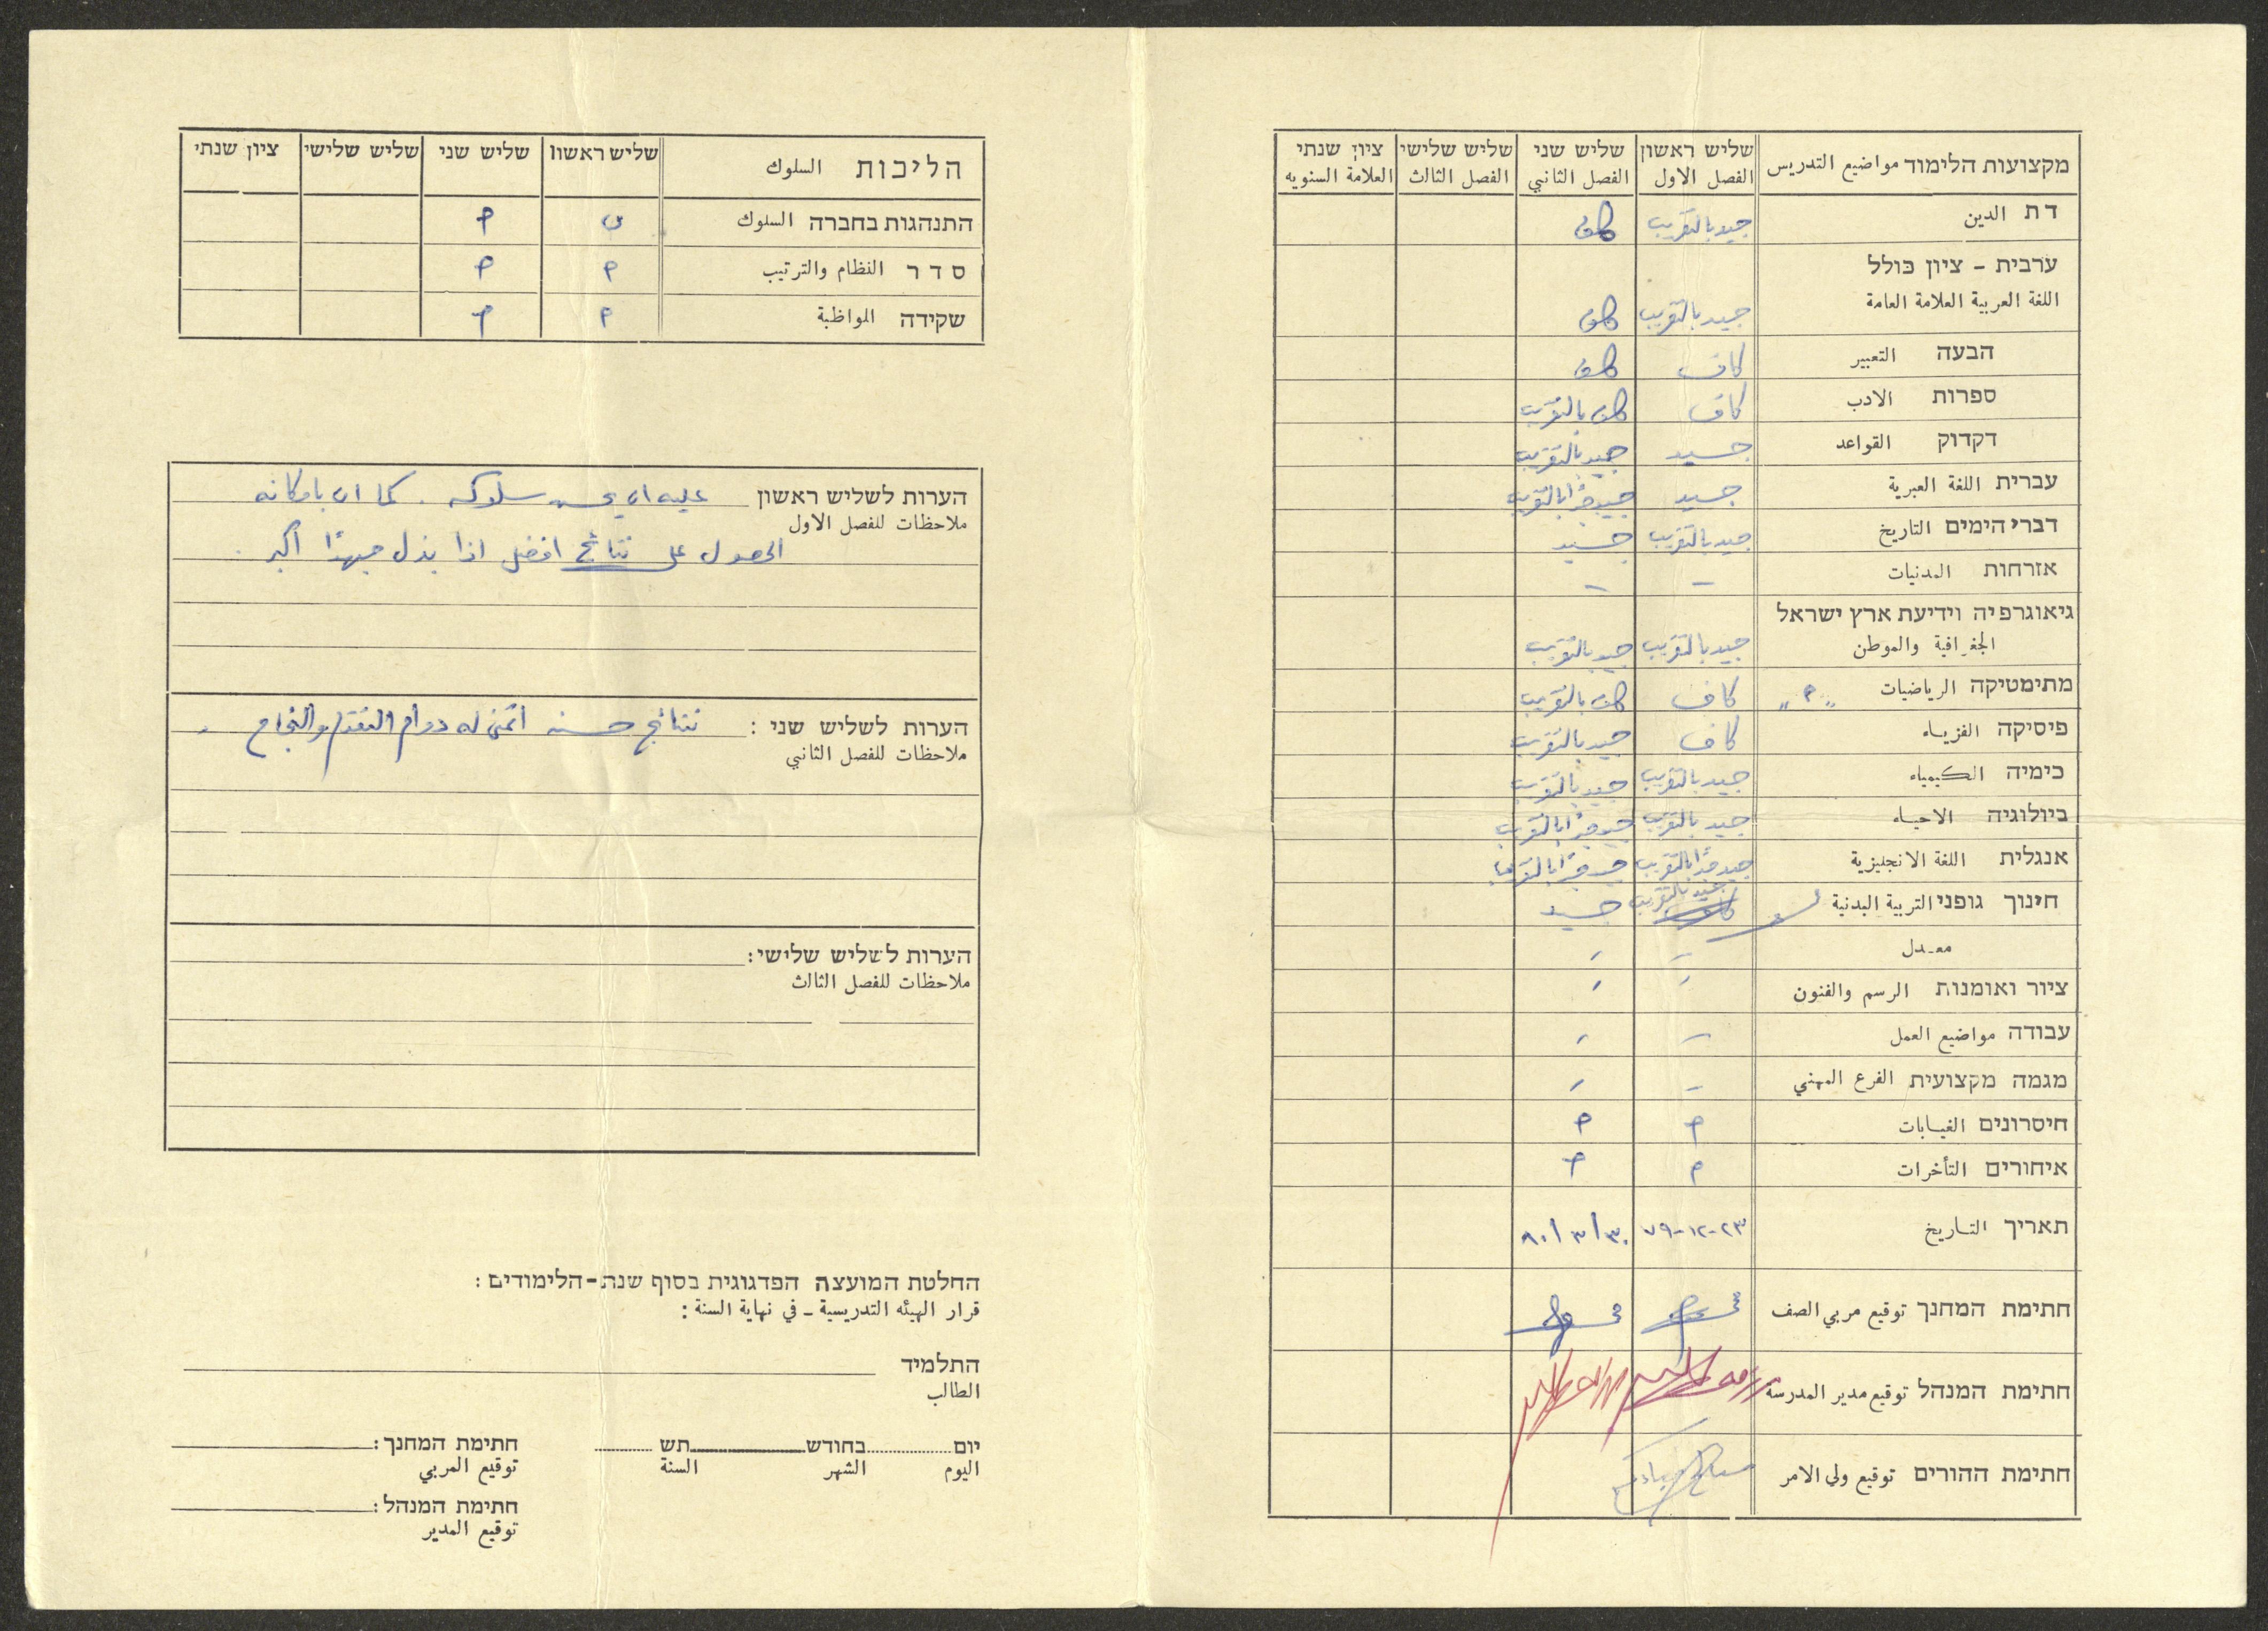 מקצועות הלימוד مواضيع التدريس שליש ראשון שליש שני שליש שלישי ציון שנתי
الفصل الاول الفصل الثاني الفصل الثالث العلامة السنويه
דת الدين جيد بالتقريب كاف
ערבית - ציון כולל
اللغة العربية العلامة العامة جيد بالتقريب كاف
הבעה التعبير كاف كاف
ספרות الادب كاف كاف بالتقريب
דקדוק القواعد جسيد جيد بالتقريب
עברית اللغة العبرية جسيد جيد جدًا بالتقريب
דברי הימים التاريخ جيد بالتقريب جسيد
אזרחות المدنيات – –
גיאוגרפיה וידיעת ארץ ישראל
الجغرافية والموطن جيد بالتقريب جيد بالتقريب
מתימטיקה الرياضيات „م" كاف كاف بالتقريب
פיסיקה الفزياء كاف جيد بالتقريب
כימיה الكيمياء جيد بالتقريب جيد بالتقريب
ביולוגיה الاحياء جيد بالتقريب جيد جدًا بالتقريب
אנגלית اللغة الانجليزية جيد جدًا بالتقريب جيد جدًا بالتقريب
חינוך גופני التربية البدنية جيد بالتقريب جسيد
معدل – –
ציור ואומנות الرسم والفنون – –
עבודה مواضيع العمل – –
מגמה מקצועית الفرع المهني – –
חיסרונים الغيابات م م
איחורים التأخرات م م
תאריך التاريخ ٢٣-١٢-٧٩ ٣٠/٣/٨٠
חתימת המחנך توقيع مربي الصف
חתימת המנהל توقيع مدير المدرسة
חתימת ההורים توقيع ولي الامر
הליכות السلوك שליש ראשון שליש שני שליש שלישי ציון שנתי
התנהגות בחברה السلوك س م
סדר النظام والترتيب م م
שקידה المواظبة م م
הערות לשליש ראשון عليه ان يحسن سلوكه. كما ان بامكانه
ملاحظات للفصل الاول
الحصول على نتائج افضل اذا بذل جهدًا اكبر.
הערות לשליש שני: نتائج حسنه اتمنى له دوام التقدم والنجاح.
ملاحظات للفصل الثاني
הערות לשליש שלישי:
ملاحظات للفصل الثالث
החלטת המועצה הפדגוגית בסוף שנת-הלימודים:
قرار الهيئه التدريسية - في نهاية السنة:
התלמיד
الطالب
יום בחודש תש חתימת המחנך:
اليوم الشهر السنة توقيع المربي
חתימת המנהל:
توقيع المدير